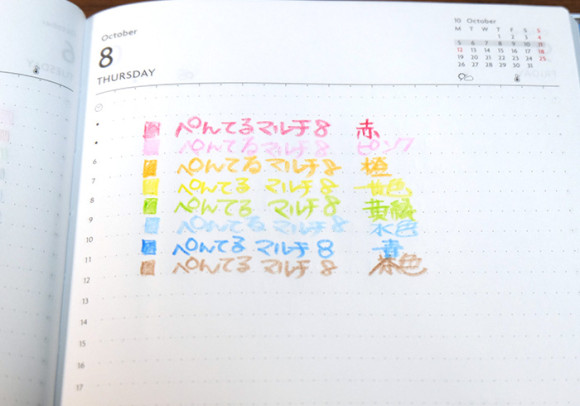 October
8
THURSDAY
10 October
M T W T F S S
1 2 3 4
5 6 7 8 9 10 11
12 13 14 15 16 17 18
19 20 21 22 23 24 25
26 27 28 29 30 31
ぺんてるマルチ8 赤
ぺんてるマルチ8 ピンク
ぺんてるマルチ8 橙
6 ぺんてる マルチ8 黄色
7
8 ぺんてる マルチ8 黄緑
9 ぺんてる マルチ8 水色
10 ぺんてる マルチ8 青
11 ぺんてる マルチ8 茶色
12
13
14
15
16
17